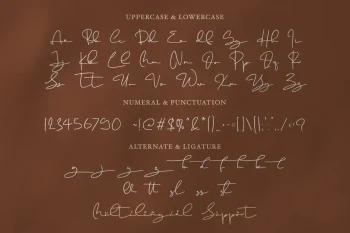 UPPERCASE & LOWERCASE
Aa Bb Cc Dd Ee Ff Gg Hh Ii
Jj Kk Ll Mm Nn Oo Pp Qq Rr
Ss Tt Uu Vv Ww Xx Yy Zz
NUMERAL & PUNCTUATION
1234567890
ALTERNATE & LIGATURE
Multilingual Support